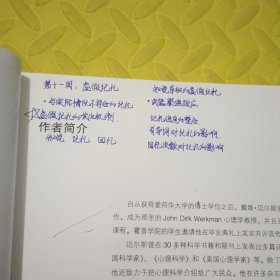 第十一周:虚假记忆
·与实际情况不符合的记忆
虚假记忆的
记忆 回忆
如何导致的虚假记忆
记忆
引导词对记忆的影响
回忆次数对记忆的影响
作者简介
自从获得爱荷华大学的博士学位之后,戴维·迈尔斯
作,成为那里的 John Dirk Werkman 心理学教授,并且
课程。霍普学院的学生邀请他在毕业典礼上发言并评选他
迈尔斯曾在 30 多种科学书籍和期刊上发表过多篇
国科学家》、《心理科学》和《美国心理学家》等。除了
他还致力于把心理科学介绍给广大民众。他在